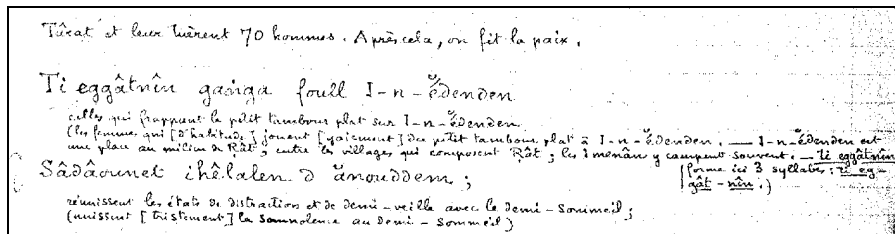 Tûrat et leur tuèrent 70 hommes. Après cela, on fit la paix.
Ti eggâtnîn gaṅga foull I-n-ĕ́denden
celles qui frappent le petit tambour plat sur I-n-ĕ́denden
(les femmes qui [d'habitude] jouent [gaiement] du petit tambour plat à I-n-ĕ́denden. — I-n-ĕ́denden est
une place au milieu de Rât, entre les villages qui composent Rât; les Imenân y campent souvent. — ti eggâtnîn
(forme ici 3 syllabes: ti eg-
gât-nîn.)
Sâdâounet ihêlalen d ănouddem;
réunissent les états de distraction et de demi-veille avec le demi-sommeil;
(unissent [tristement] la somnolence au demi-sommeil;)